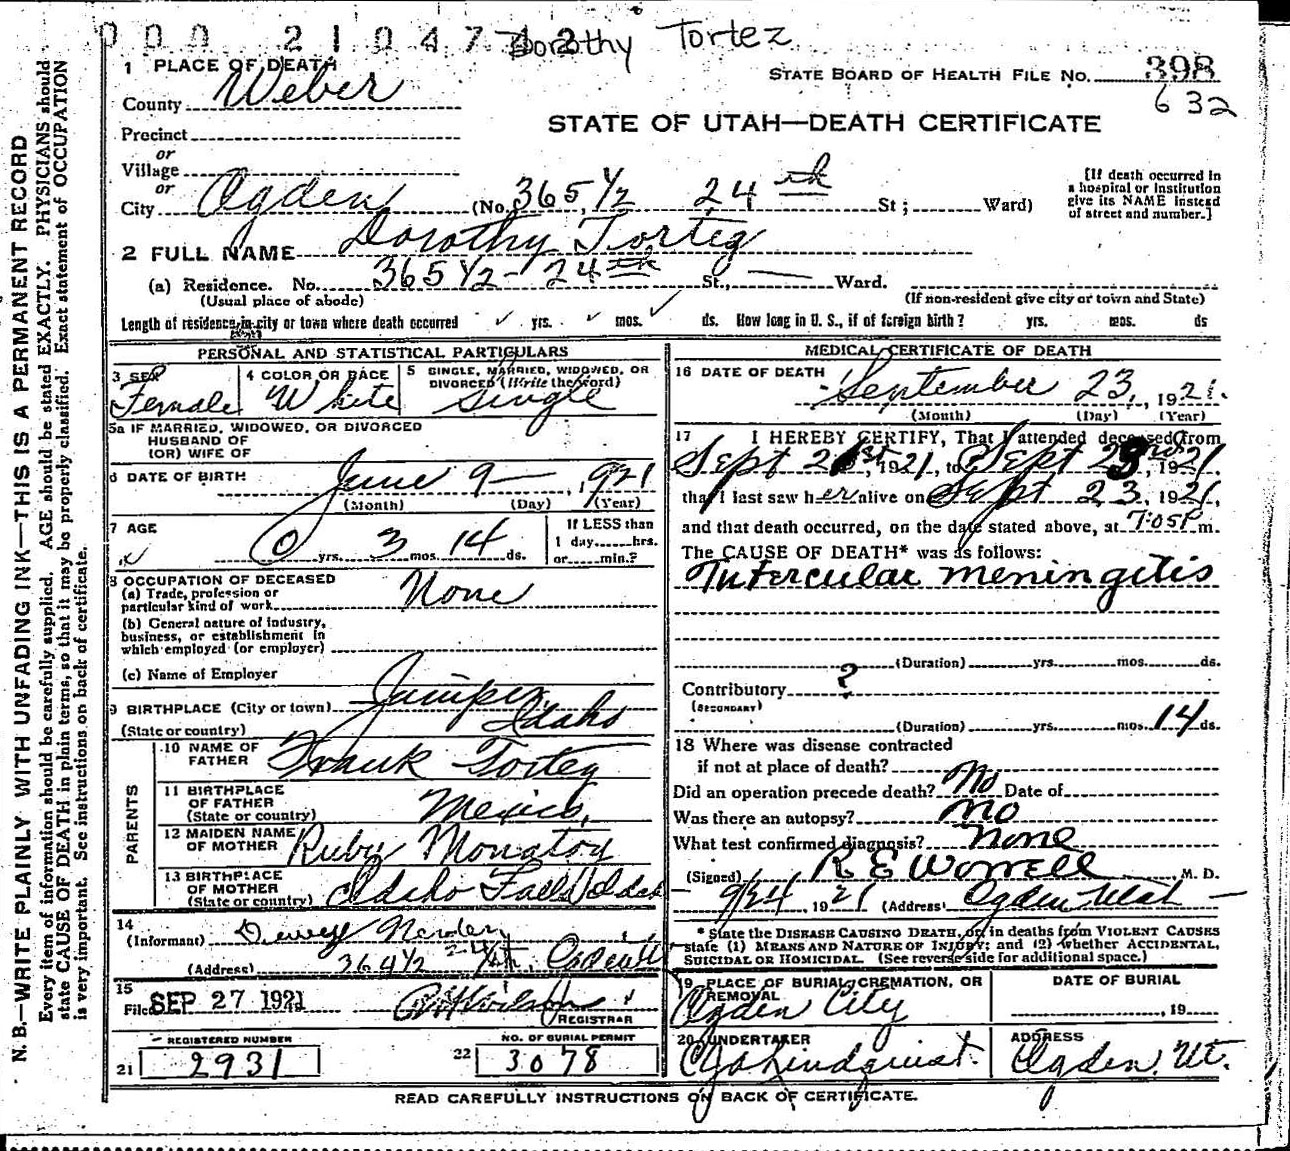 0 0 0 2 1 0 4 7 4 2 Dorothy Tortez
1 PLACE OF DEATH
STATE BOARD OF HEALTH FILE NO. 398
County Weber
632
STATE OF UTAH—DEATH CERTIFICATE
Precinct
or
Village
or
City Ogden (No. 365 1/2 24th St; Ward)
[If death occurred in
a hospital or institution
give its NAME instead
of street and number.]
2 FULL NAME Dorothy Tortez
(a) Residence. No. 365 1/2 - 24th St., Ward.
(Usual place of abode)
(If non-resident give city or town and State)
Length of residence in city or town where death occurred ✓ yrs. ✓ mos. ✓ ds. How long in U. S., if of foreign birth? yrs. mos. ds
PERSONAL AND STATISTICAL PARTICULARS
3 SEX Female
4 COLOR OR RACE White
5 SINGLE, MARRIED, WIDOWED, OR
DIVORCED (Write the word) Single
5a IF MARRIED, WIDOWED, OR DIVORCED
HUSBAND OF
(OR) WIFE OF
6 DATE OF BIRTH June 9 — , 1921
(Month) (Day) (Year)
7 AGE 0 yrs. 3 mos. 14 ds.
If LESS than
1 day......hrs.
or......min.?
8 OCCUPATION OF DECEASED
(a) Trade, profession or
particular kind of work None
(b) General nature of industry,
business, or establishment in
which employed (or employer)
(c) Name of Employer
9 BIRTHPLACE (City or town) Juniper,
(State or country) Idaho
PARENTS
10 NAME OF
FATHER Frank Tortez
11 BIRTHPLACE
OF FATHER
(State or country) Mexico,
12 MAIDEN NAME
OF MOTHER Ruby
13 BIRTHPLACE
OF MOTHER
(State or country) Idaho Falls Idaho
14
(Informant)
(Address) 364 1/2 24th,
15
Filed SEP 27 1921
REGISTRAR
REGISTERED NUMBER
21 2931
NO. OF BURIAL PERMIT
22 3078
MEDICAL CERTIFICATE OF DEATH
16 DATE OF DEATH September 23, 1921.
(Month) (Day) (Year)
17 I HEREBY CERTIFY, That I attended deceased from
Sept 21st, 1921, to Sept 23rd, 1921,
that I last saw her alive on Sept 23, 1921,
and that death occurred, on the date stated above, at 7:05P m.
The CAUSE OF DEATH* was as follows:
Tubercular meningitis
(Duration) yrs. mos. ds.
Contributory ?
(SECONDARY)
(Duration) yrs. mos. 14 ds.
18 Where was disease contracted
if not at place of death?
Did an operation precede death? No Date of
Was there an autopsy? no
What test confirmed diagnosis? none
(Signed) R E Worrell, M. D.
9/24, 1921 (Address) Ogden Utah
* State the DISEASE CAUSING DEATH, or in deaths from VIOLENT CAUSES
state (1) MEANS AND NATURE OF INJURY; and (2) whether ACCIDENTAL,
SUICIDAL OR HOMICIDAL. (See reverse side for additional space.)
19 PLACE OF BURIAL, CREMATION, OR
REMOVAL
Ogden City
DATE OF BURIAL
, 19
20 UNDERTAKER
Lindquist.
ADDRESS
Ogden, Ut.
READ CAREFULLY INSTRUCTIONS ON BACK OF CERTIFICATE.
N. B.—WRITE PLAINLY WITH UNFADING INK—THIS IS A PERMANENT RECORD
Every item of information should be carefully supplied. AGE should be stated EXACTLY. PHYSICIANS should
state CAUSE OF DEATH in plain terms, so that it may be properly classified. Exact statement of OCCUPATION
is very important. See instructions on back of certificate.